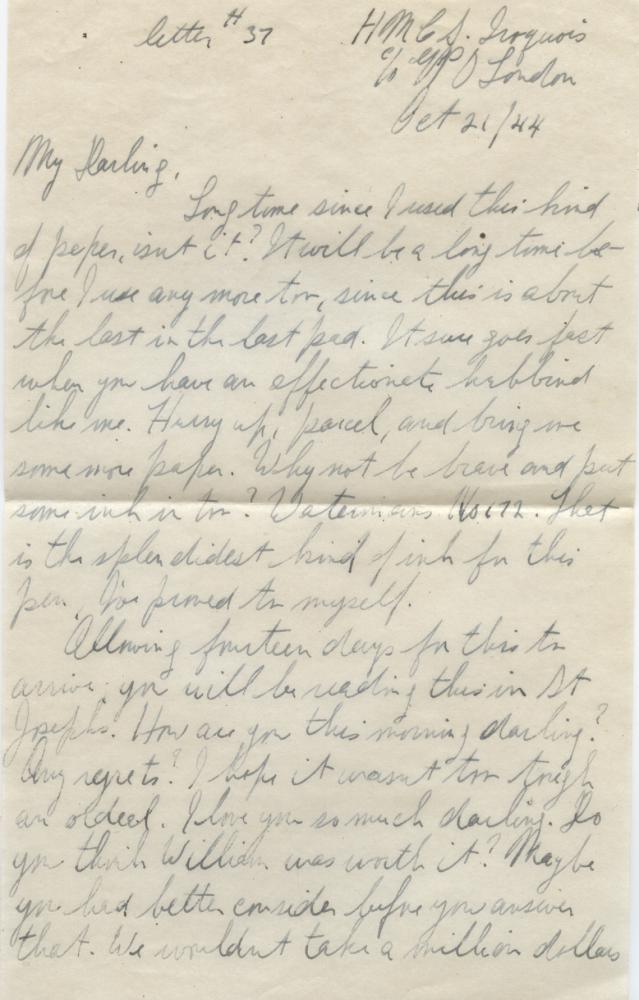 letter # 37
H M C S. Iroquois
c/o GPO London
Oct 21/44
My Darling,
Long time since I used this kind
of paper, isnt it? It will be a long time be-
fore I use any more too, since this is about
the last in the last pad. It sure goes fast
when you have an affectionate hubbind
like me. Hurry up, parcel, and bring me
some more paper. Why not be brave and put
some ink in too? Watermans No 172. That
is the splendidest kind of ink for this
pen, I've proved to myself.
Allowing fourteen days for this to
arrive, you will be reading this in St
Josephs. How are you this morning darling?
Any regrets? I hope it wasnt too tough
an ordeal. I love you so much darling. Do
you think William was worth it? Maybe
you had better consider before you answer
that. We wouldnt take a million dollars